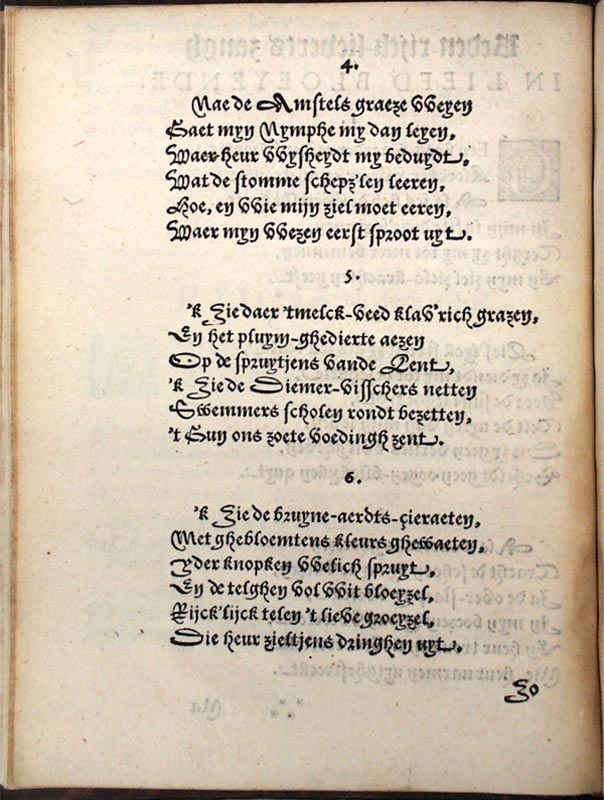 4.
Nae de Amstels graeze VVeyen
Gaet myn Nymphe my dan leyen,
Waer heur VVysheydt my beduydt,
Wat de stomme schepz'len leeren,
Hoe, en VVie mijn ziel moet eeren,
Waer myn VVezen eerst sproot uyt.
5.
'k Zie daer 'tmelck-veed klav'rich grazen,
En het pluym-ghedierte aezen
Op de spruytjens vande Lent,
'k Zie de Diemer-visschers netten
Swemmers scholen rondt bezetten,
't Guy ons zoete voedingh zent.
6.
'k Zie de bruyne-aerdts-çieraeten,
Met ghebloemtens kleurs ghewaeten,
Yder knopken VVelich spruyt,
En de telghen vol VVit bloeyzel,
Rijck'lijck telen 't lieve groeyzel,
Die heur zieltjens dringhen uyt.
Zo